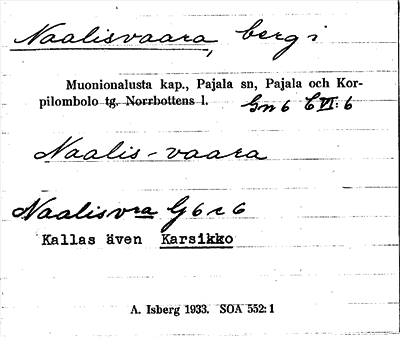 Naalisvaara, berg i
Muonionalusta kap., Pajala sn, Pajala och Kor-
pilombolo tg. Norrbottens l. Gn 6 C VI: 6
Naalis-vaara
Naalisvra G 6 r 6
Kallas även Karsikko
A. Isberg 1933. SOA 552: 1